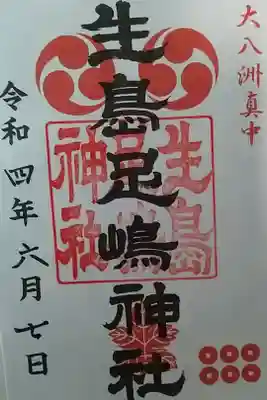 大八洲真中
生島足嶋神社
生島足島神社
令和四年六月七日